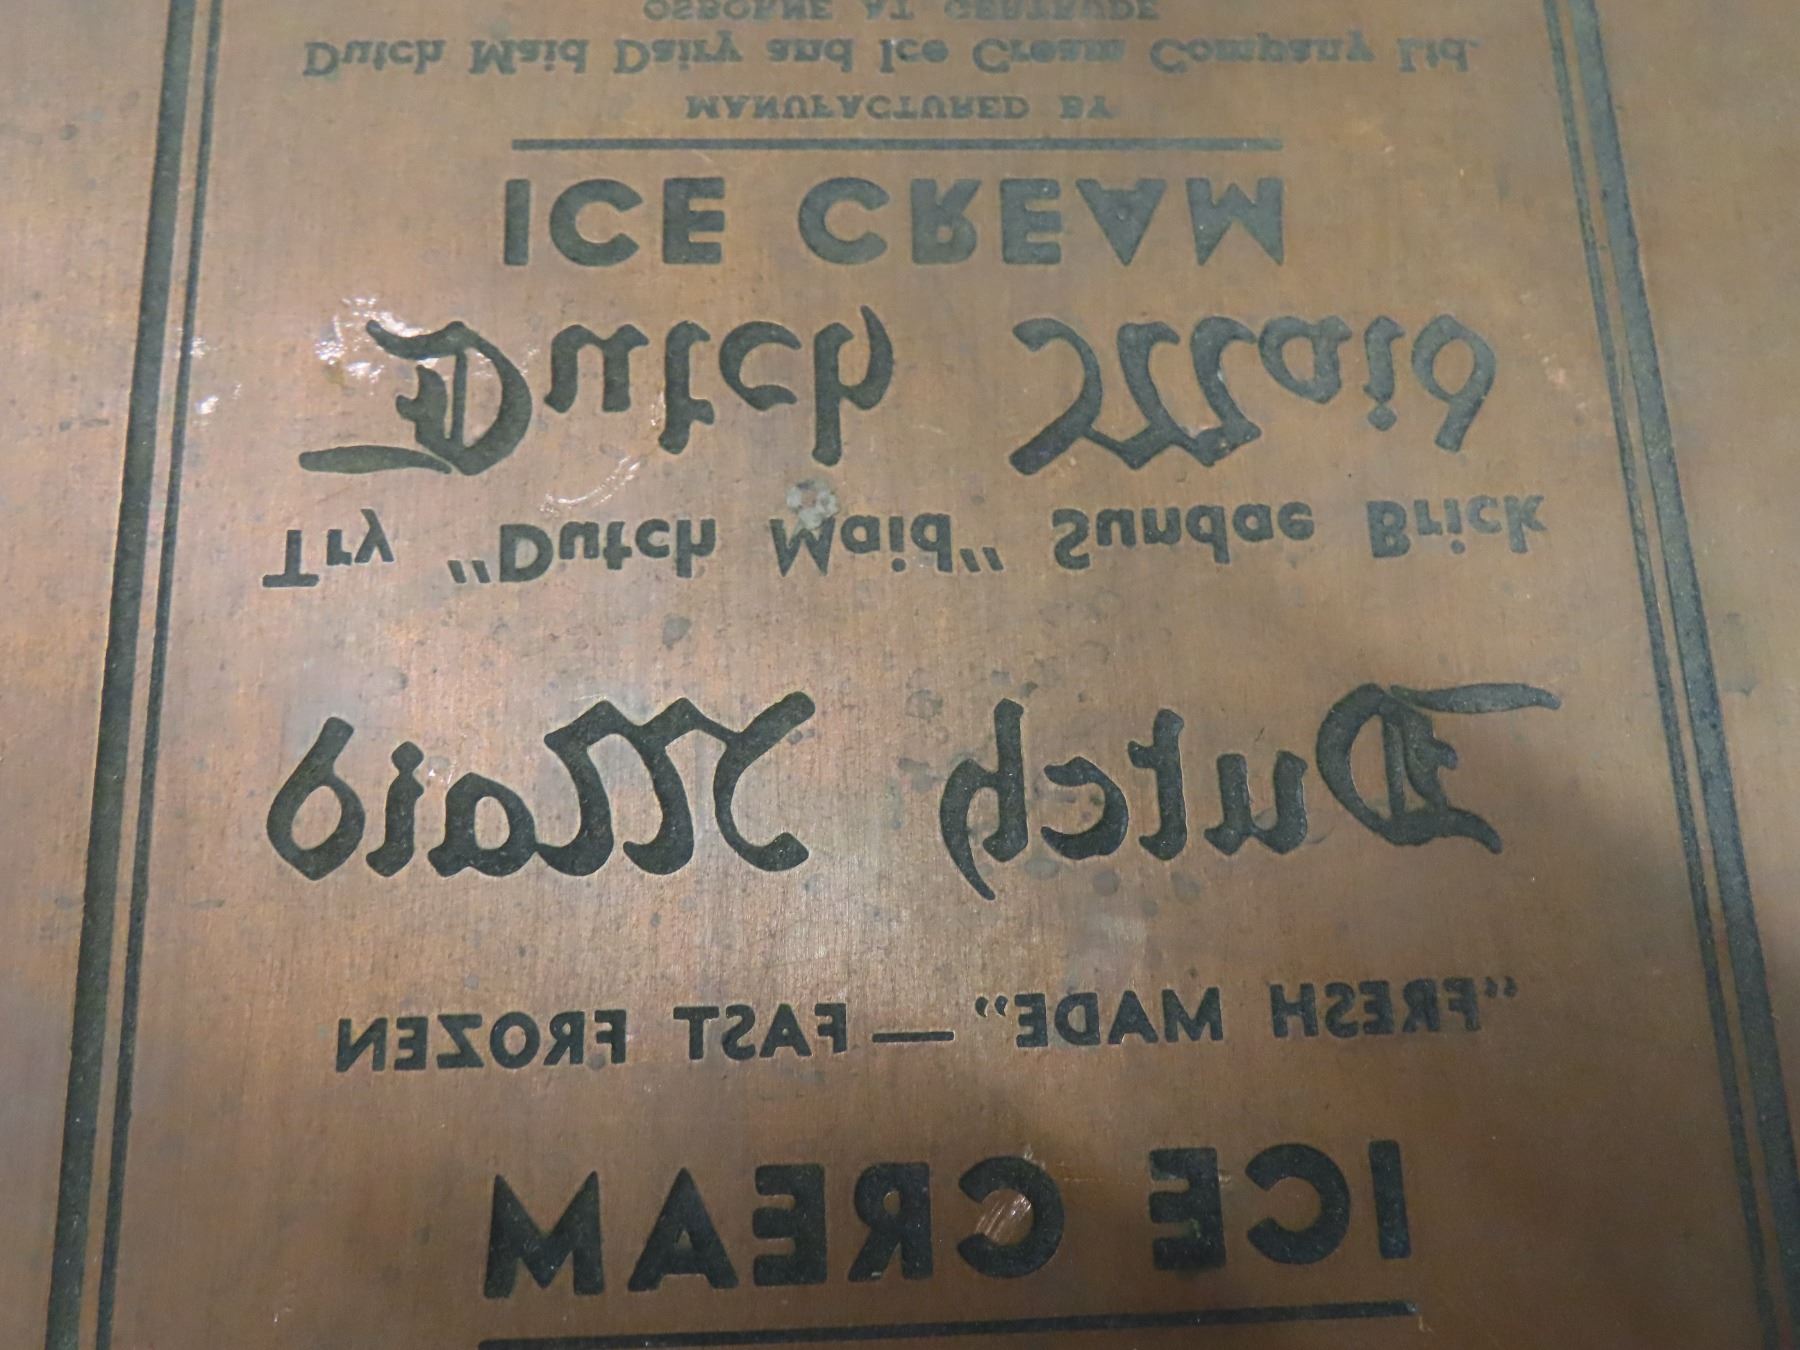 OSBORNE AT GERTRUDE
Dutch Maid Dairy and Ice Cream Company Ltd.
MANUFACTURED BY
ICE CREAM
Dutch Maid
Try "Dutch Maid" Sundae Brick
Dutch Maid
"FRESH MADE" — FAST FROZEN
ICE CREAM